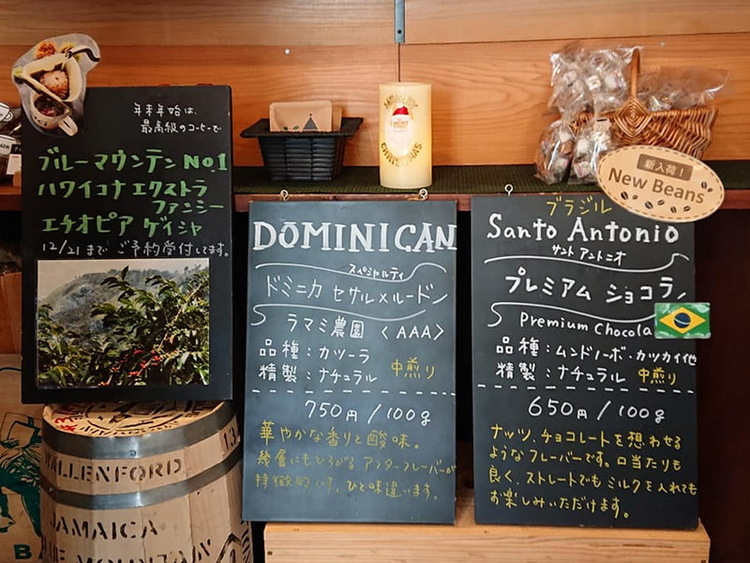 年末年始は、
最高級のコーヒーで
ブルーマウンテン NO.1
ハワイコナ エクストラ
ファンシー
エチオピア ゲイシャ
12/21まで ご予約受付してます。
WALLENFORD
JAMAICA
BLUE MOUNTAIN
MERRY
CHRISTMAS
DOMINICAN
スペシャルティ
ドミニカ セサル×ルードン
ラマミ農園 〈AAA〉
品種:カツーラ
精製:ナチュラル 中煎り
750円/100g
華やかな香りと酸味。
幾層にもひろがる アフターフレーバーが
特徴的です。ひと味違います。
新入荷!
New Beans
ブラジル
Santo Antonio
サント アントニオ
プレミアム ショコラ
Premium Chocola
品種:ムンドノーボ・カツカイ他
精製:ナチュラル 中煎り
650円/100g
ナッツ、チョコレートを想わせる
ようなフレーバーです。口当たりも
良く、ストレートでも ミルクを入れても
お楽しみいただけます。